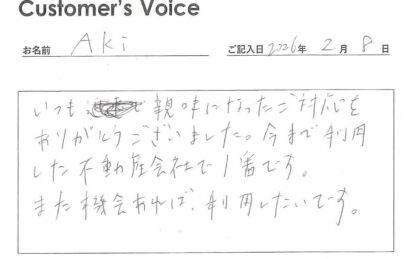 Customer's Voice
お名前 Aki ご記入日 2026年 2月 8日
いつも 親味になったご対応を
ありがとうございました。今まで利用
した不動産会社で1番です。
また機会あれば、利用したいです。